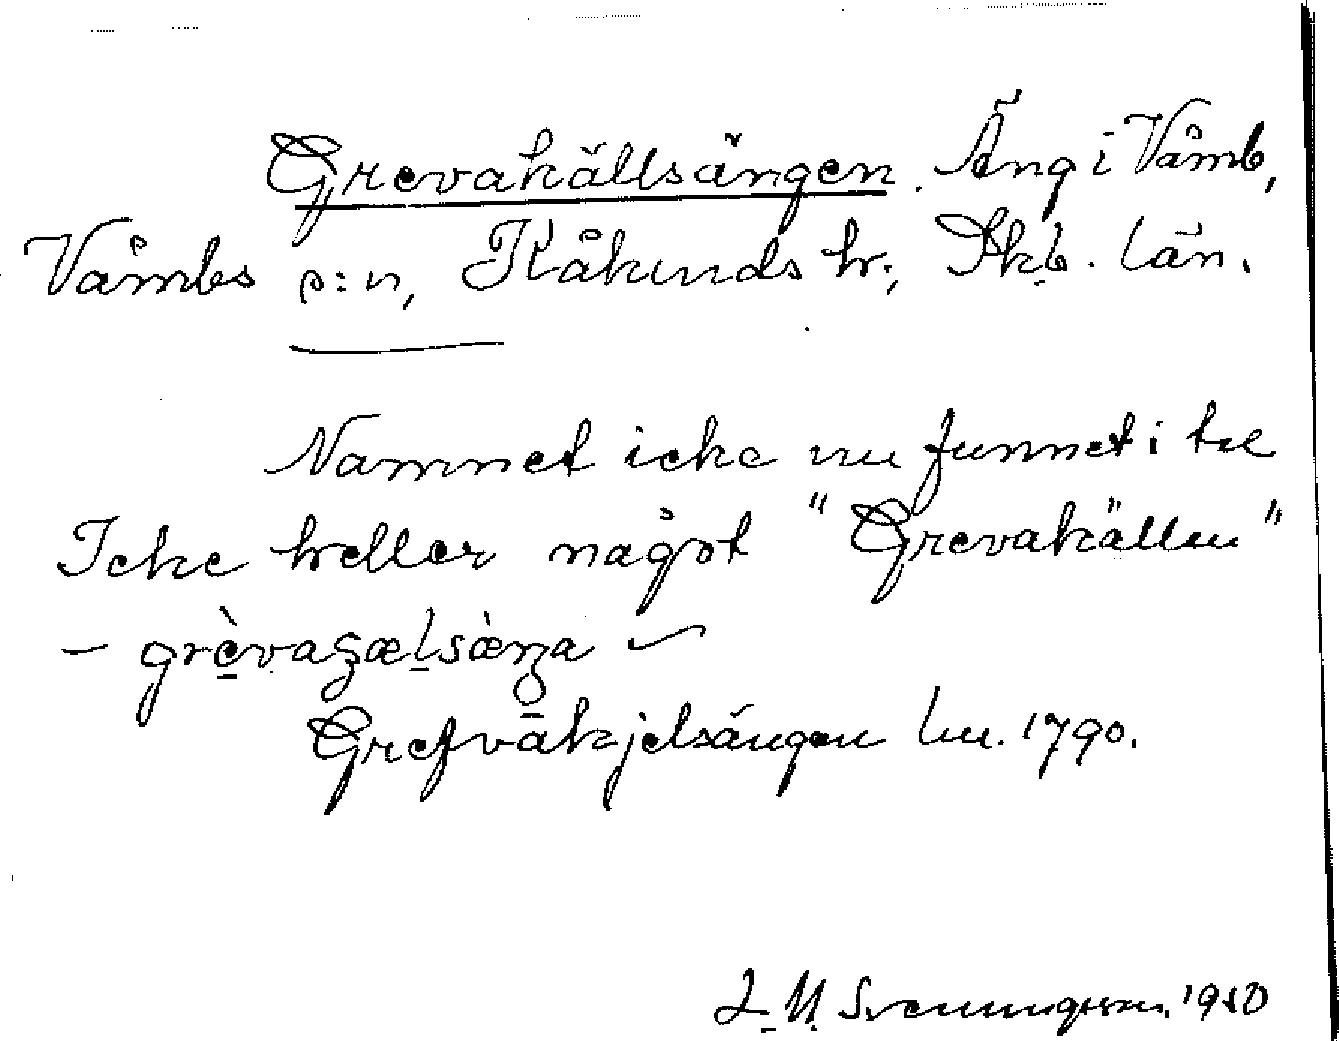 Grevakällsängen. Äng i Våmb,
Våmbs s:n, Kåkinds hr., Skb. län.
Namnet icke nu funnet i bel
Icke heller något "Grevakällan"
Grefväkjelsängen hu. 1790.
L. M. Svenungsson, 1950